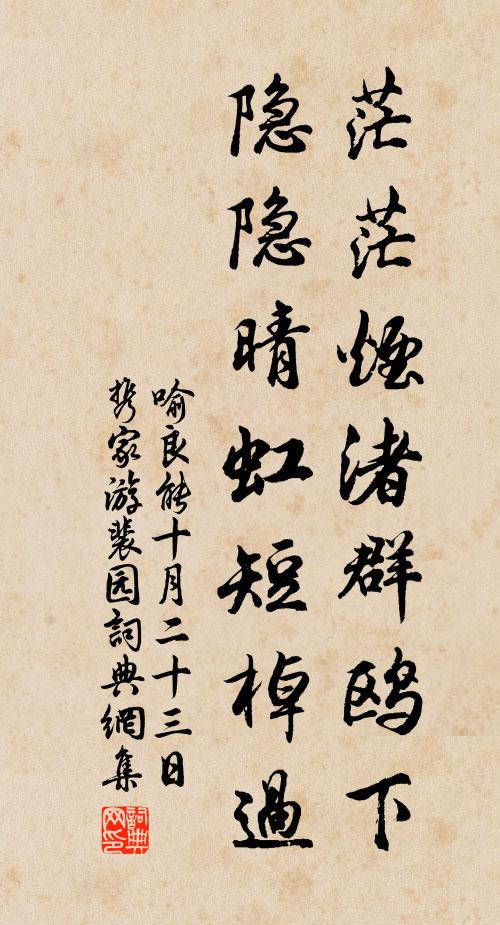 茫茫煙渚群鸥下
隐隐晴虹短棹過
喻良能十月二十三日
携家游裴园詞典網集
詞典网印